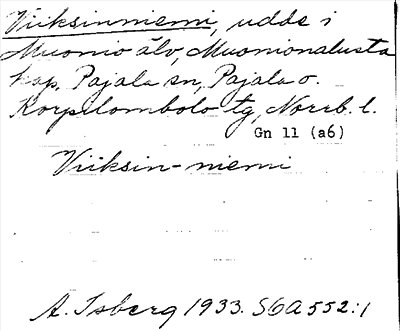 Viiksinniemi, udde i
Muonio älv, Muonionalusta
kap, Pajala sn, Pajala o.
Korpilombolo tg, Norrb. l.
Gn 11 (a6)
Viiksin-niemi
A. Isberg 1933. S6A552:1